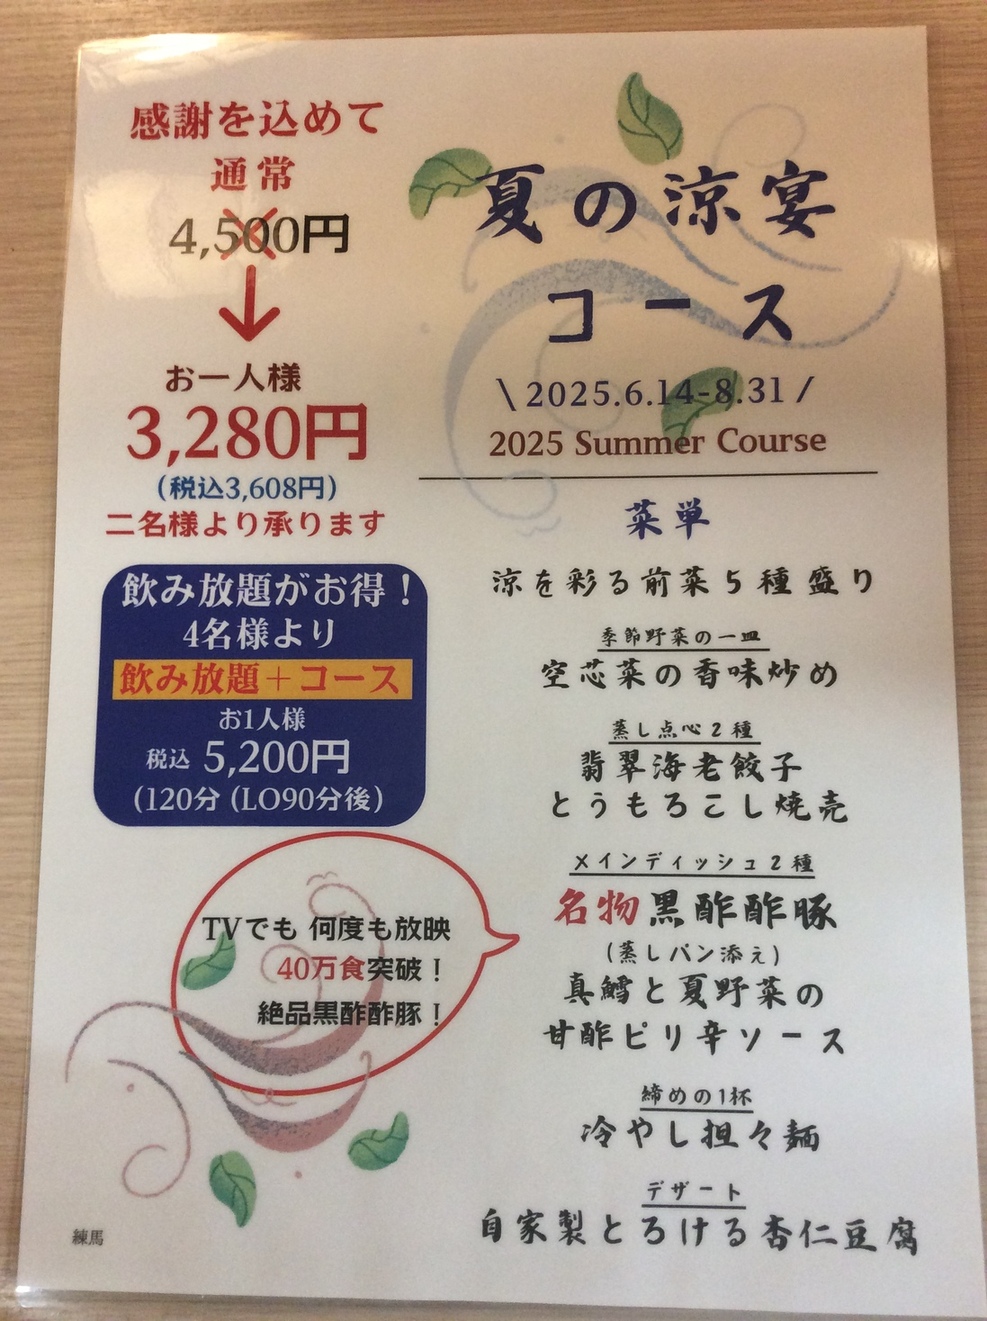 感謝を込めて
通常
4,500円
お一人様
3,280円
(税込3,608円)
二名様より承ります
飲み放題がお得！
4名様より
飲み放題＋コース
お1人様
税込 5,200円
(120分 (LO90分後)
TVでも 何度も放映
40万食突破！
絶品黒酢酢豚！
練馬
夏の涼宴
コース
\ 2025.6.14-8.31 /
2025 Summer Course
菜単
涼を彩る前菜5種盛り
季節野菜の一皿
空芯菜の香味炒め
蒸し点心2種
翡翠海老餃子
とうもろこし焼売
メインディッシュ2種
名物黒酢酢豚
(蒸しパン添え)
真鱈と夏野菜の
甘酢ピリ辛ソース
締めの1杯
冷やし担々麺
デザート
自家製とろける杏仁豆腐